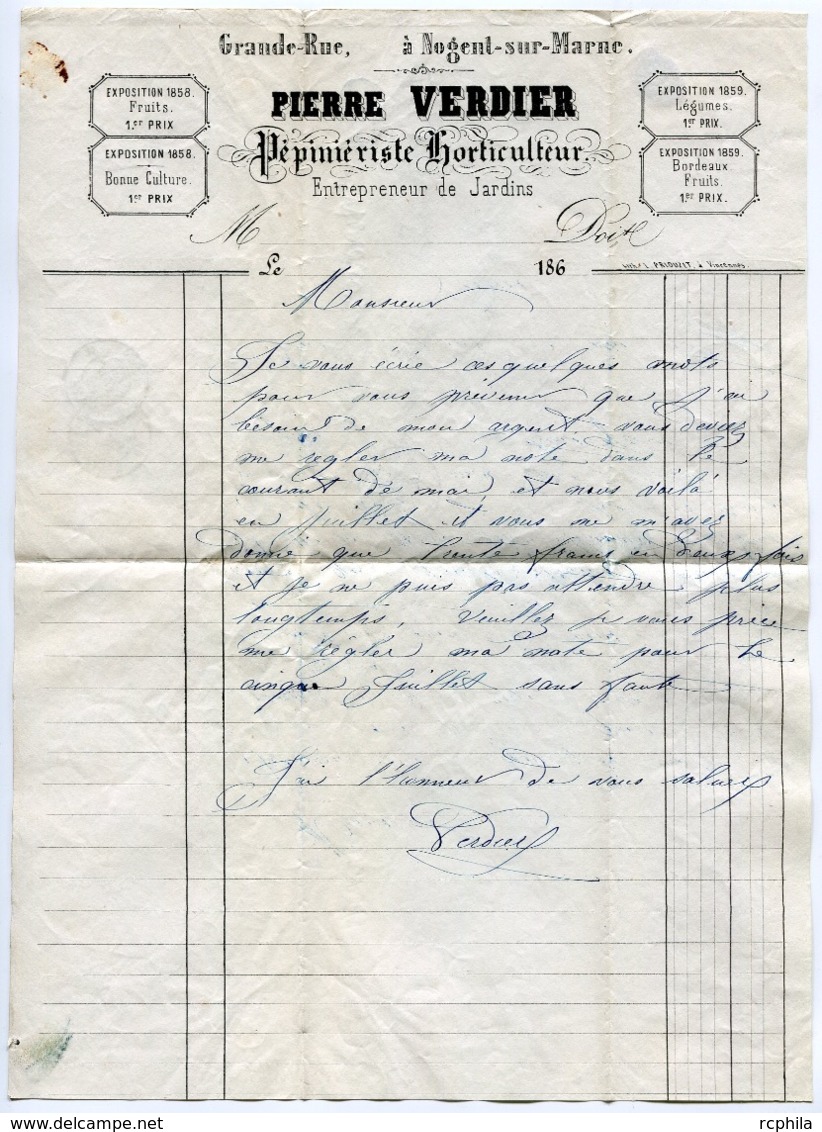 Grande-Rue, à Nogent-sur-Marne.
PIERRE VERDIER
Pépiniériste Horticulteur.
Entrepreneur de Jardins
EXPOSITION 1858.
Fruits.
1.er PRIX
EXPOSITION 1858.
Bonne Culture.
1er PRIX
EXPOSITION 1859.
Légumes.
1.er PRIX.
EXPOSITION 1859.
Bordeaux
Fruits.
1er PRIX.
M Doit
Le 186
Lith. PRIOUZIT, à Vincennes.
Monsieur
Je vous écrie ces quelques mots
pour vous prévenir que j'ai
bésoin de mon argent vous deviez
me régler ma note dans le
courant de mai, et nous voilà
en Juillet et vous ne m'avez
donné que trente francs en deux fois
et je ne puis pas attendre plus
longtemps, veuillez je vous prie
me régler ma note pour le
cinque Juillet sans faute
J'ai l'honneur de vous saluer
Verdier
rcphila